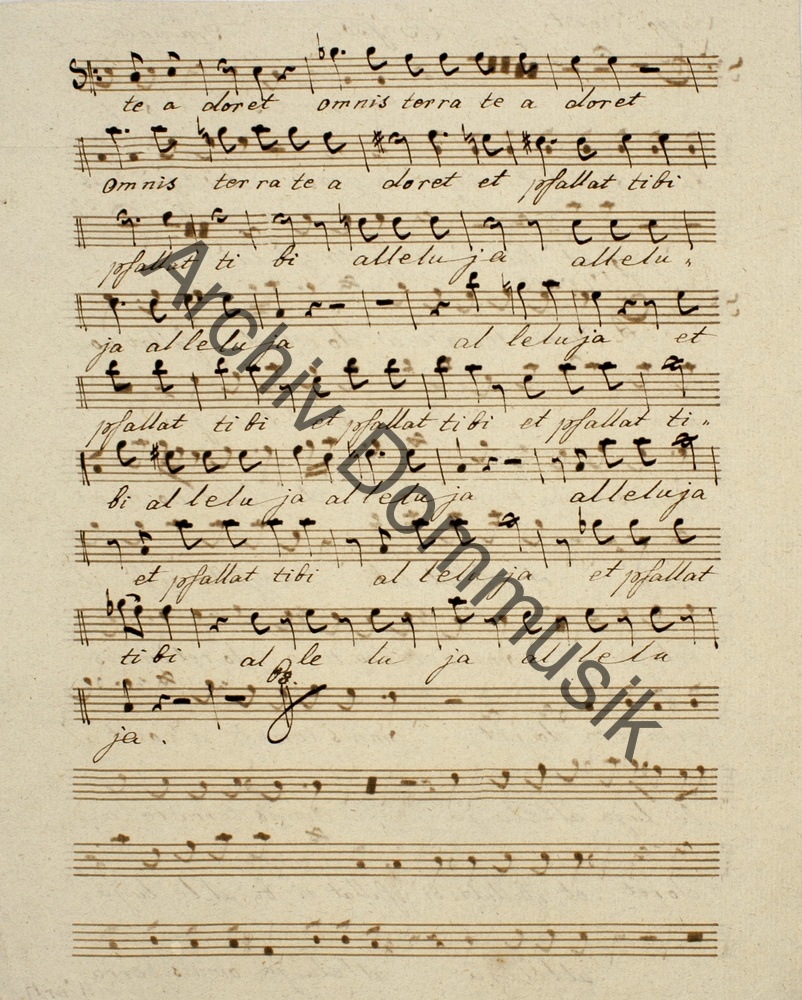 te a doret omnis terra te a doret
omnis terra te a doret et psallat tibi
psallat ti bi alleluja allelu„
ja alleluja al leluja et
psallat tibi et psallat tibi et psallat ti„
bi alleluja alleluja alleluja
et psallat tibi al leluja et psallat
tibi al le lu ja al lelu
ja.
Archiv Dommusik